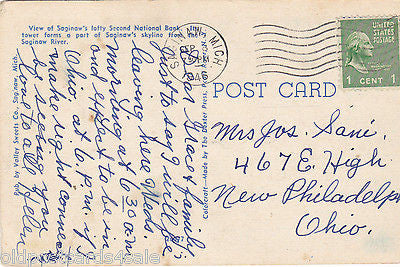 View of Saginaw's lofty Second National Bank.
tower forms a part of Saginaw's skyline from the
Saginaw River.
Pub. by Valley Sweets Co., Saginaw, Mich.
Colorcraft—Made by The Dexter Press, Pearl River,
MICH
SEP
PM
UNITED STATES
POSTAGE
1 CENT 1
POST CARD
Dear Grace & family:
Just to say I will be
leaving here Weds.
morning at 6:30 a.m.
and expect to be in
Ohio at 6 p.m. if I
make right connections
Be seeing you
Love Helen
Mrs Jos. Sani.
467 E. High
New Philadelphia
Ohio.
oldpostcards4sale